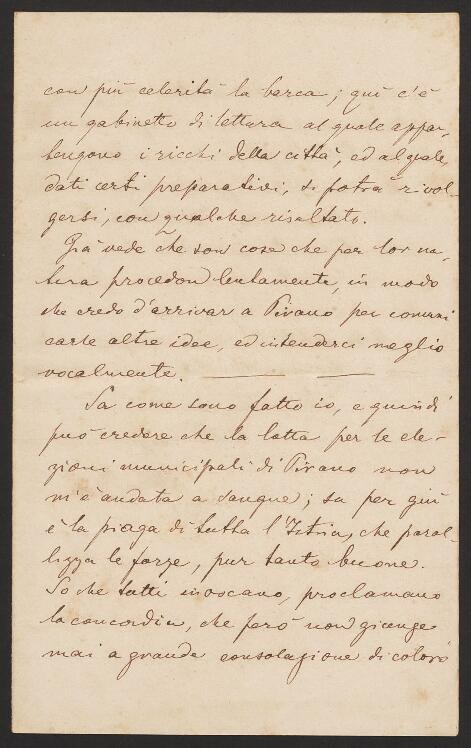 con più celerità la barca; quì c'è
un gabinetto di lettura al quale appar-
tengono i ricchi della città, ed al quale,
dati certi preparativi, si potrà rivol-
gersi, con qualche risultato.
Già vede che son cose che per lor na-
tura procedon lentamente, in modo
che credo d'arrivar a Pirano per comuni
carle altre idee, ed intenderci meglio
vocalmente.
Sa come sono fatto io, e quindi
può credere che la lotta per le ele-
zioni municipali di Pirano non
m'è andata a sangue; sa per giù
è la piaga di tutta l'Istria, che paral-
lizza le forze, pur tanto buone.
So che tutti invocano, proclamano
la concordia, che però non giunge
mai a grande consolazione di coloro